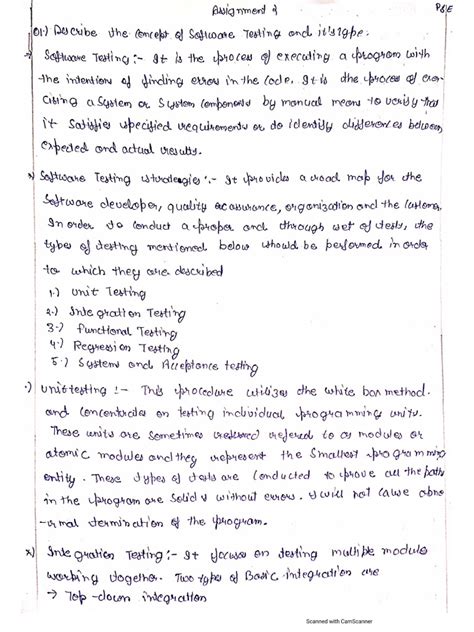 Assignment 2
PSE
Q1) Describe the concept of Software Testing and it's type:
Software Testing :- It is the process of executing a program with
the intention of finding errors in the code. It is the process of exer-
cising a system or System component by manual means to verify that
it Satisfies specified requirements or do identify differences between
expected and actual results.
Software Testing Strategies :- It provides a road map for the
Software developer, quality assurance, organization and the customer.
In order to conduct a proper and through set of tests, the
types of testing mentioned below should be performed in order
to which they are described
1.) Unit Testing
2.) Integration Testing
3.) Functional Testing
4.) Regression Testing
5.) System and Acceptance testing
.) Unit testing :- This procedure utilizes the white box method.
and concentrates on testing individual programming units.
These units are sometimes refered to as modules or
atomic modules and they represent the Smallest programming
entity. These types of tests are conducted to prove all the path
in the program are Solid without errors. will not cause abno
-rmal termination of the program.
x) Integration Testing :- It focuses on testing multiple module
working together. Two types of Basic integration are
→ Top-down integration
Scanned with CamScanner